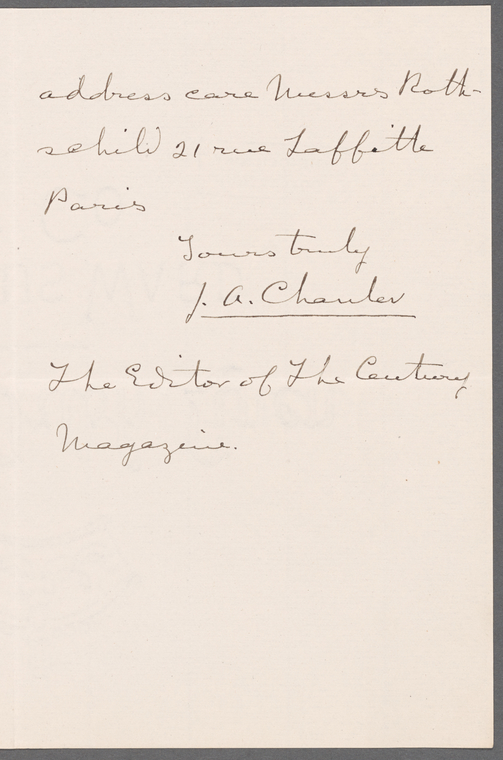 address care Messrs Roth-
schild 21 rue Laffitte
Paris
Yours truly
J. A. Chanler
The Editor of The Century
Magazine.